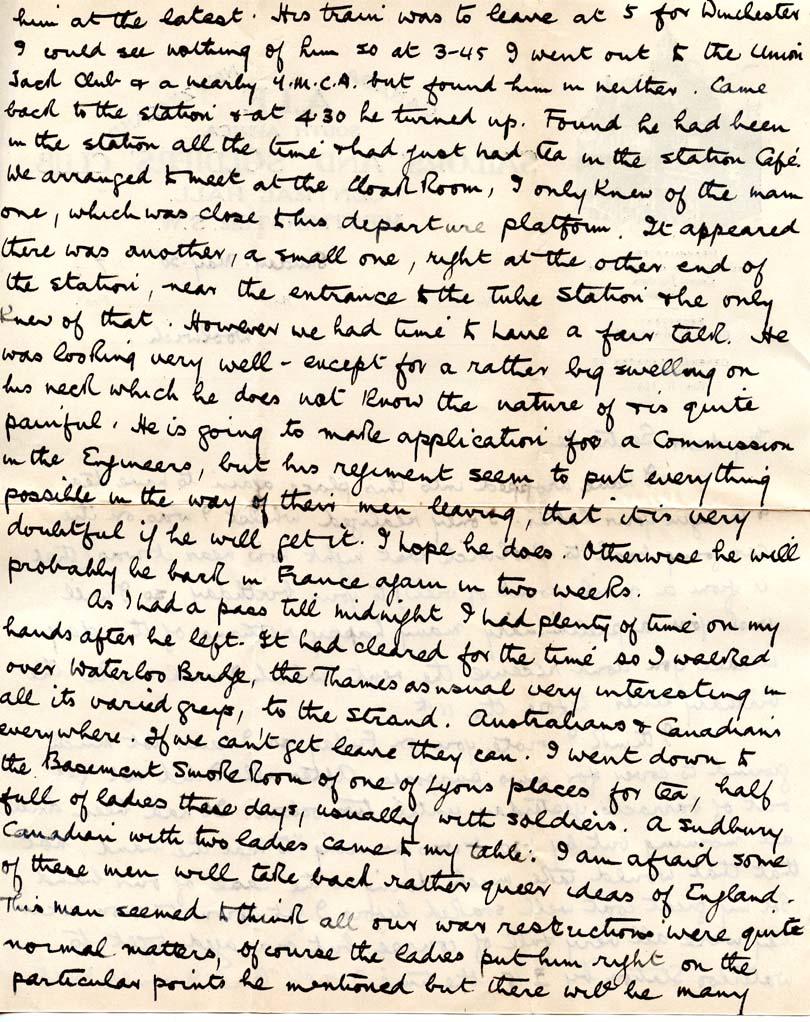 him at the latest. His train was to leave at 5 for Winchester
I could see nothing of him so at 3-45 I went out to the Union
Jack Club & a nearby Y.M.C.A. but found him in neither. Came
back to the station & at 4.30 he turned up. Found he had been
in the station all the time & had just had tea in the station Café.
We arranged to meet at the Cloak Room, I only knew of the main
one, which was close to his departure platform. It appeared
there was another, a small one, right at the other end of
the station, near the entrance to the Tube Station & he only
knew of that. However we had time to have a fair talk. He
was looking very well - except for a rather big swelling on
his neck which he does not know the nature of & is quite
painful. He is going to make application for a Commission
in the Engineers, but his regiment seem to put everything
possible in the way of their men leaving, that it is very
doubtful if he will get it. I hope he does. Otherwise he will
probably be back in France again in two weeks.
As I had a pass till midnight I had plenty of time on my
hands after he left. It had cleared for the time so I walked
over Waterloo Bridge, the Thames as usual very interesting in
all its varied greys, to the Strand. Australians & Canadians
everywhere. If we can't get leave they can. I went down to
the Basement Smoke Room of one of Lyons places for tea, half
full of ladies these days, usually with soldiers. A Sudbury
Canadian with two ladies came to my table. I am afraid some
of these men will take back rather queer ideas of England.
This man seemed to think all our war restructions were quite
normal matters, of course the ladies put him right on the
particular points he mentioned but there will be many